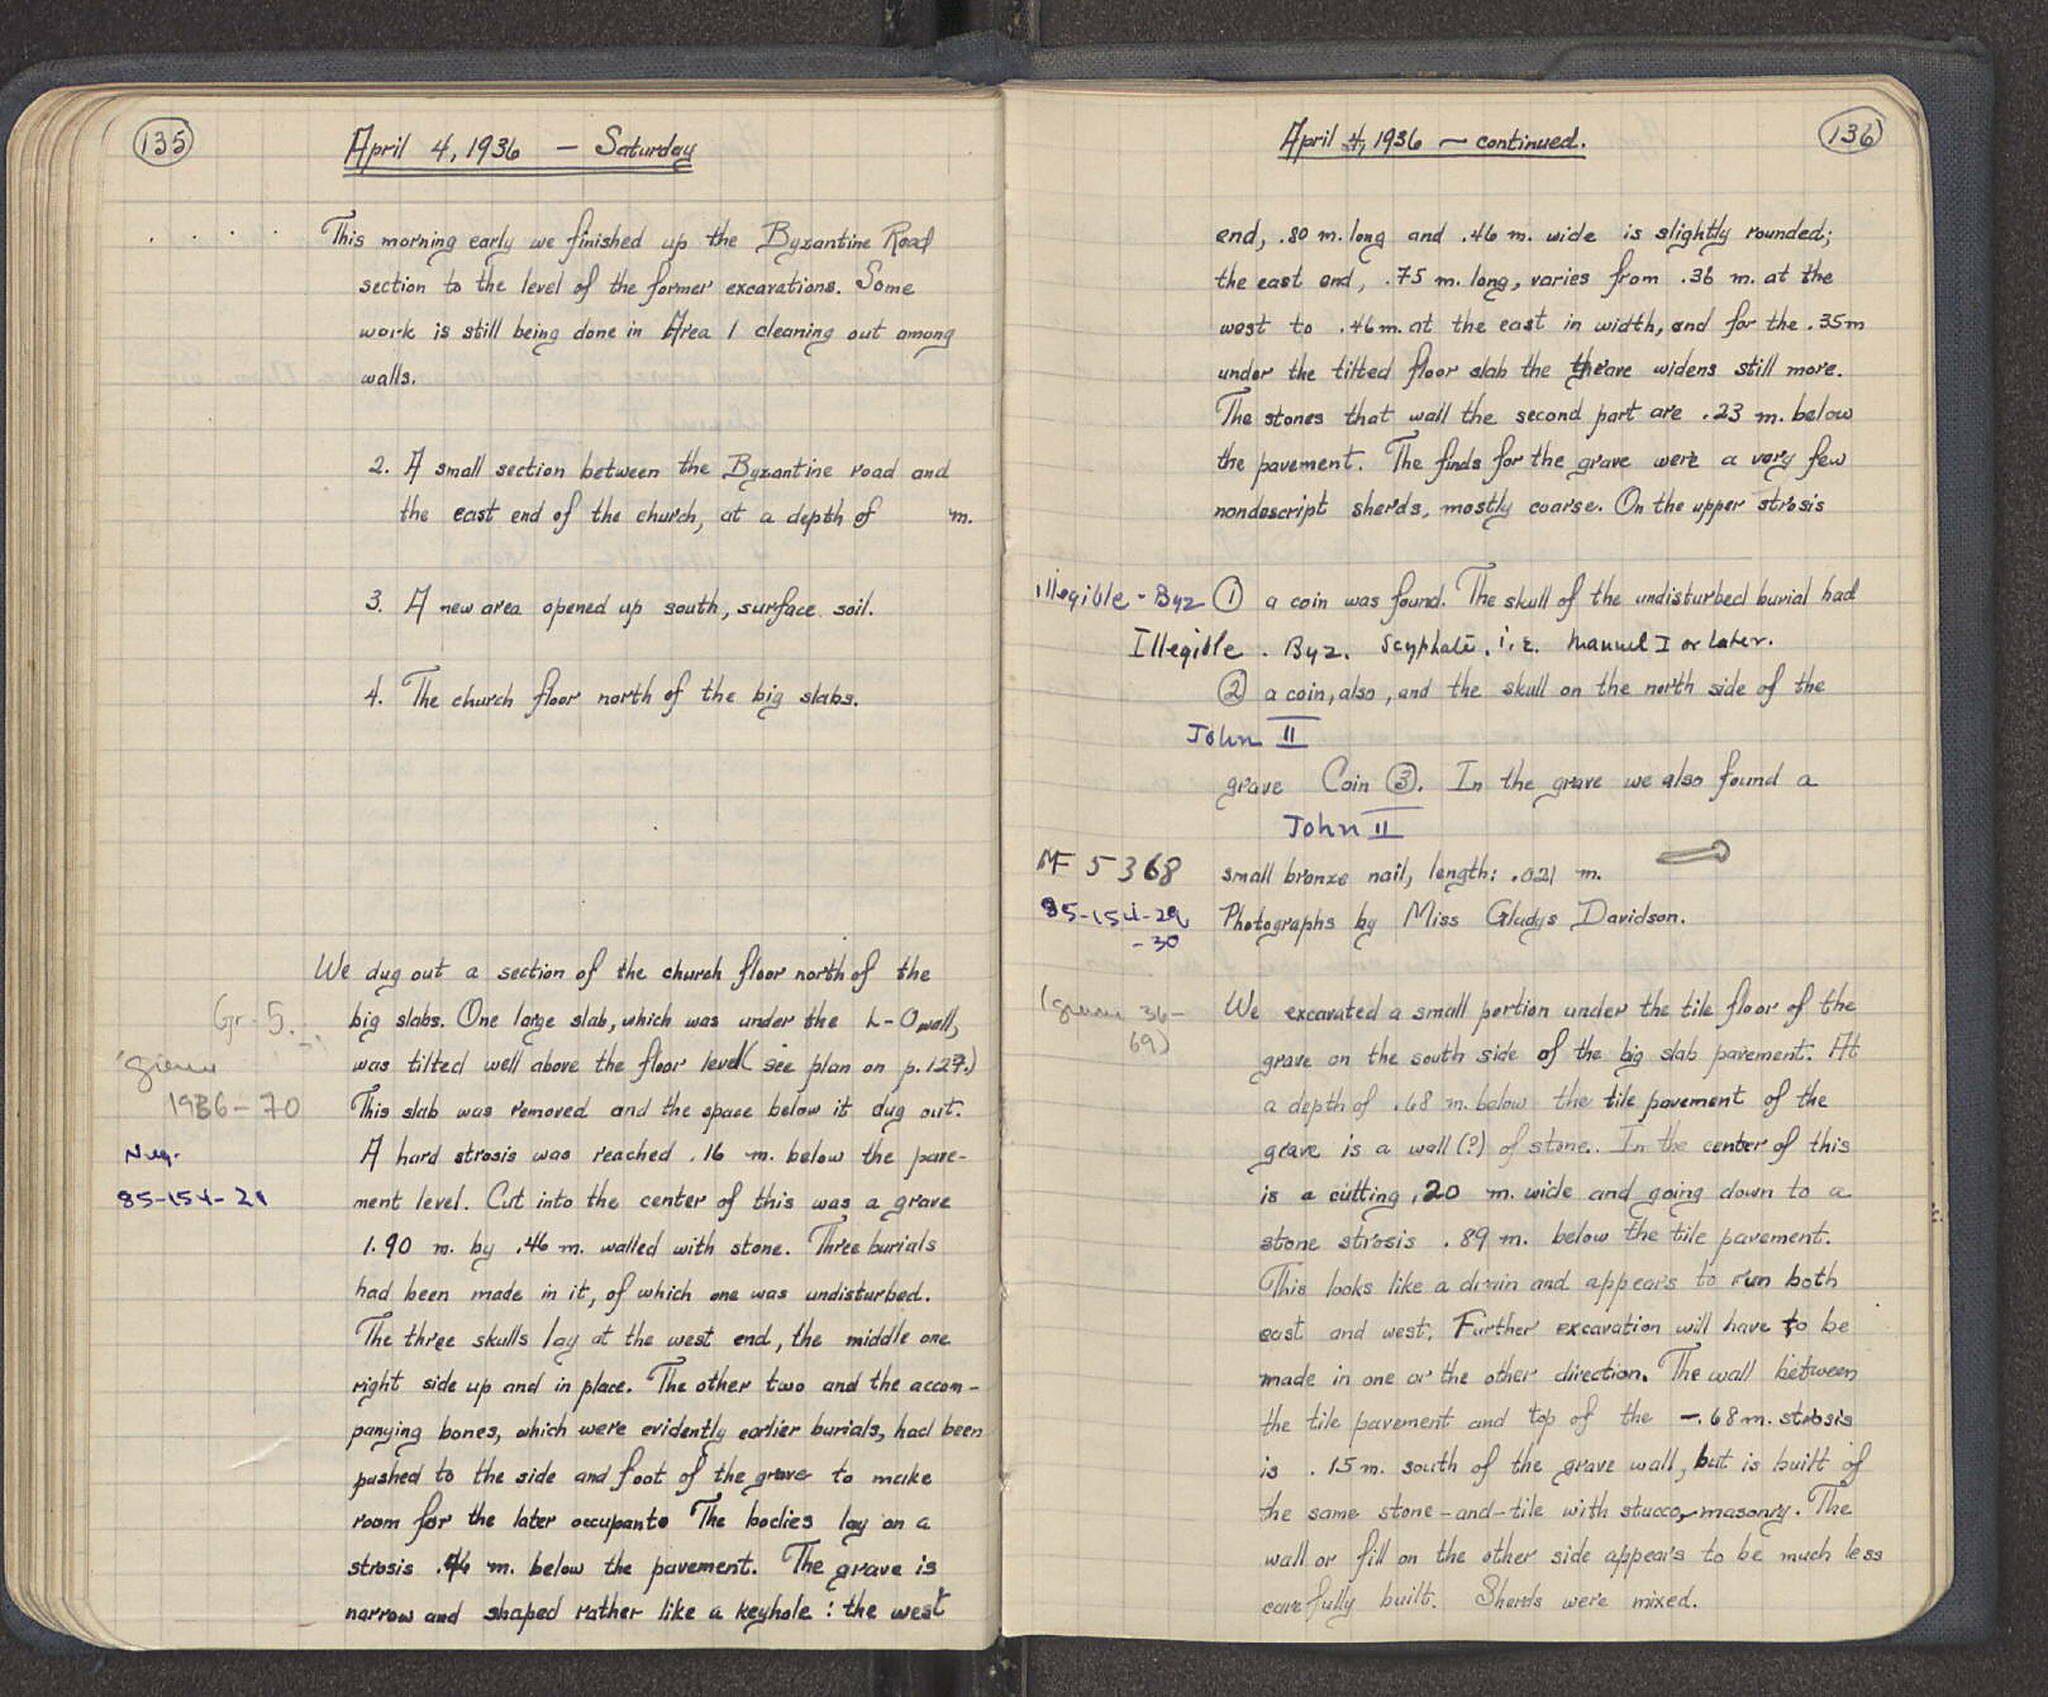 135
April 4, 1936 — Saturday
This morning early we finished up the Byzantine Road
section to the level of the former excavations. Some
work is still being done in Area 1 cleaning out among
walls.
2. A small section between the Byzantine road and
the east end of the church, at a depth of m.
3. A new area opened up south, surface soil.
4. The church floor north of the big slabs.
We dug out a section of the church floor north of the
Gr-5. big slabs. One large slab, which was under the L-O wall,
was tilted well above the floor level (see plan on p. 127.)
1936-70 This slab was removed and the space below it dug out.
Neg. A hard strosis was reached .16 m. below the pave-
85-154-21 ment level. Cut into the center of this was a grave
1.90 m. by .46 m. walled with stone. Three burials
had been made in it, of which one was undisturbed.
The three skulls lay at the west end, the middle one
right side up and in place. The other two and the accom-
panying bones, which were evidently earlier burials, had been
pushed to the side and foot of the grave to make
room for the later occupants. The bodies lay on a
strosis .46 m. below the pavement. The grave is
narrow and shaped rather like a keyhole: the west
136
April 4, 1936 — continued.
end, .80 m. long and .46 m. wide is slightly rounded;
the east end, .75 m. long, varies from .36 m. at the
west to .46 m. at the east in width, and for the .35 m
under the tilted floor slab the grave widens still more.
The stones that wall the second part are .23 m. below
the pavement. The finds for the grave were a very few
nondescript sherds, mostly coarse. On the upper strosis
illegible - Byz ① a coin was found. The skull of the undisturbed burial had
Illegible. Byz. Scyphate. i.e. Manuel I or later.
② a coin, also, and the skull on the north side of the
John II
grave Coin ③. In the grave we also found a
John II
MF 5368 small bronze nail, length: .021 m.
85-154-29 Photographs by Miss Gladys Davidson.
-30
36- We excavated a small portion under the tile floor of the
69) grave on the south side of the big slab pavement. At
a depth of .68 m. below the tile pavement of the
grave is a wall (?) of stone. In the center of this
is a cutting .20 m. wide and going down to a
stone strosis .89 m. below the tile pavement.
This looks like a drain and appears to run both
east and west. Further excavation will have to be
made in one or the other direction. The wall between
the tile pavement and top of the -.68 m. strosis
is .15 m. south of the grave wall, but is built of
the same stone-and-tile with stucco masonry. The
wall or fill on the other side appears to be much less
carefully built. Sherds were mixed.